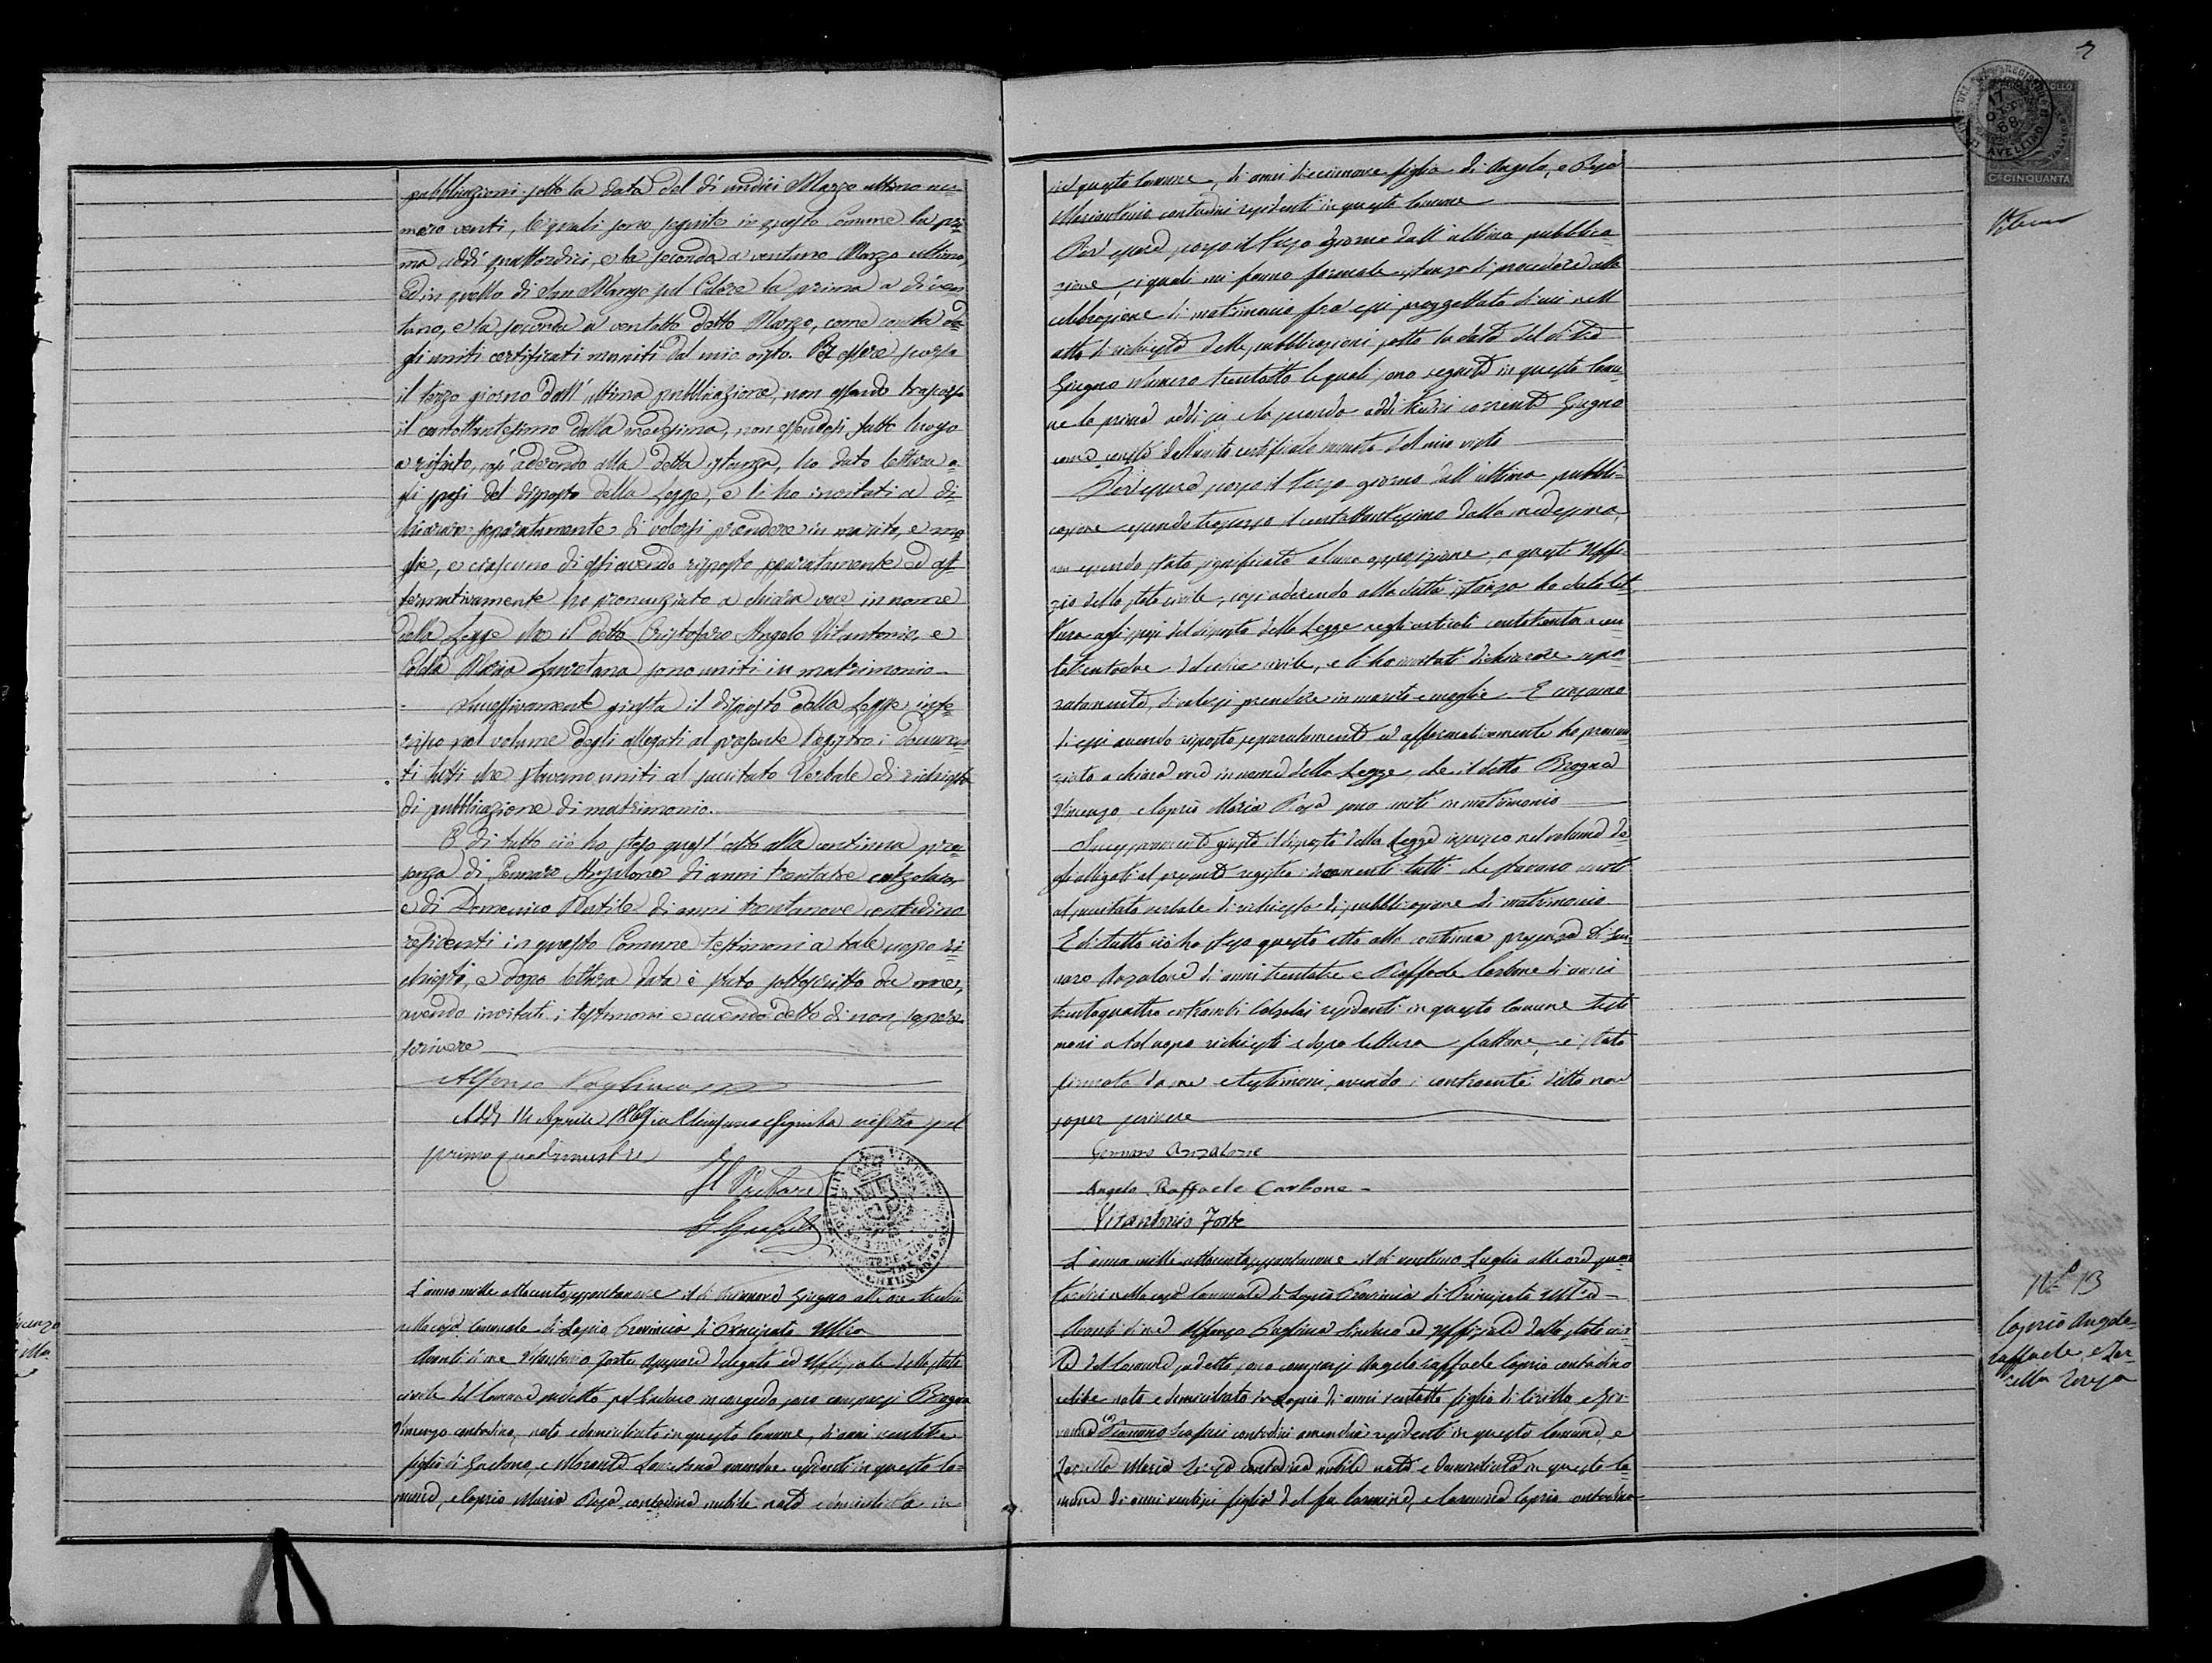 pubblicazioni sotto la data del dì undici Marzo ultimo nu=
mero venti, le quali sono seguite in questo Comune la pri=
ma addì quattordici, e la seconda a ventuno Marzo ultimo,
Ed in quello di San Mango sul Calore la prima a dì ven
tuno, e la seconda a ventotto detto Marzo, come consta da=
gli uniti certificati muniti dal mio visto. Per essere scorso
il terzo giorno dall'ultima pubblicazione, non essendo trascorso
il centottantesimo dalla medesima, non essendosi fatto luogo
a rifiuto, così aderendo alla detta istanza, ho dato lettura a=
gli sposi del disposto della Legge, e li ho invitati a di=
chiarare separatamente di volersi prendere in marito, e mo=
glie, e ciascuno di essi avendo risposto separatamente ed af=
fermativamente ho pronunziato a chiara voce in nome
della Legge che il detto Cristofaro Angelo Vitantonio, e
Maria Lauretana sono uniti in matrimonio
Successivamente giusta il disposto della Legge inse=
risco nel volume degli allegati al presente Registro i documen
ti tutti che stavano uniti al succitato Verbale di richiesta
di pubblicazione di matrimonio.
E di tutto ciò ho steso quest'atto alla continua pre=
senza di Gennaro Anzalone di anni trentatre calzolaio,
e di Domenico di anni trentanove contadino
residenti in questo Comune testimoni a tale uopo ri=
chiesti, e dopo lettura data è stato sottoscritto da me,
avendo invitati i testimoni avendo detto di non sapere
scrivere
Alfonso Pagliuca
Addì 14 Aprile 1869 in vista pel
primo quadrimestre
Il Pretore
L'anno mille ottocentosessantanove il dì diciannove Giugno alle ore tredici
nella casa Comunale di Lapio Provincia di Principato Ultra
Avanti di me Vitantonio Forte Assessore delegato ed Uffiziale dello stato
civile del Comune suddetto pel Sindaco in congedo sono comparsi Brogna
Vincenzo contadino, nato e domiciliato in questo Comune, di anni ventitre
figlio di Gaetano, e Lauretana amendue residenti in questo Co=
mune, e Caprio Maria Rosa contadina nubile nata e domiciliata in
questo Comune, di anni diciannove figlia di Angelo, e Rosa
Mariantonia contadini residenti in questo Comune
Per essere scorso il terzo giorno dall'ultima pubblica=
zione, i quali mi fanno formale istanza di procedere alla
celebrazione di matrimonio fra essi proggettato di cui nell
atto di richiesta delle pubblicazioni sotto la data del dì tre
Giugno Numero trentotto le quali sono seguite in questo Comu=
ne la prima addì sei e la seconda addì tredici corrente Giugno
come consta dall'unito certificato munito del mio visto
Per essere scorso il terzo giorno dall'ultima pubbli=
cazione essendo trascorso il centottantesimo dalla medesima,
non essendo stata significata alcuna opposizione, a questo Uffi=
zio dello stato civile, così aderendo alla detta istanza ho dato let
tura agli sposi del disposto della Legge negli articoli centotrenta e cen
totrentadue del codice civile, e li ho invitati dichiarare sepa=
ratamente, di volersi prendere in marito e moglie. E ciascuno
di essi avendo risposto separatamente ed affermativamente ho pronun
ziato a chiara voce in nome della Legge, che il detto Brogna
Vincenzo e Caprio Maria Rosa sono uniti in matrimonio
Successivamente giusta il disposto della Legge inserisco nel volume de=
gli allegati al presente registro i documenti tutti che stavano uniti
al succitato verbale di richiesta di pubblicazione di matrimonio
E di tutto ciò ho steso questo atto alla continua presenza di Gen=
naro Anzalone di anni trentatre e Raffaele Carbone di anni
trentaquattro entrambi Calzolai residenti in questo Comune testi
moni a tal uopo richiesti e dopo lettura fattone, è stato
firmato da me e testimoni, avendo i contraenti detto non
saper scrivere
Gennaro Anzalone
Angelo Raffaele Carbone
Vitantonio Forte
L'anno mille ottocentosessantanove il dì ventuno Luglio alle ore quat
tordici nella casa Comunale di Lapio Provincia di Principato Ultra
Avanti di me Alfonso Pagliuca Sindaco ed Uffiziale dello stato civi
le del Comune suddetto, sono comparsi Angelo Raffaele Caprio contadino
celibe nato e domiciliato in Lapio di anni ventotto figlio di e Gio
vanna contadini amendue residenti in questo Comune, e
Zarrella Maria Teresa contadina nubile nata e domiciliata in questo Co=
mune di anni ventisei figlia del fu Carmine, e Carmina Caprio contadina
No. 13
Caprio Angelo
Raffaele, e Zar=
rella Teresa
AVELLINO
Cmi CINQUANTA